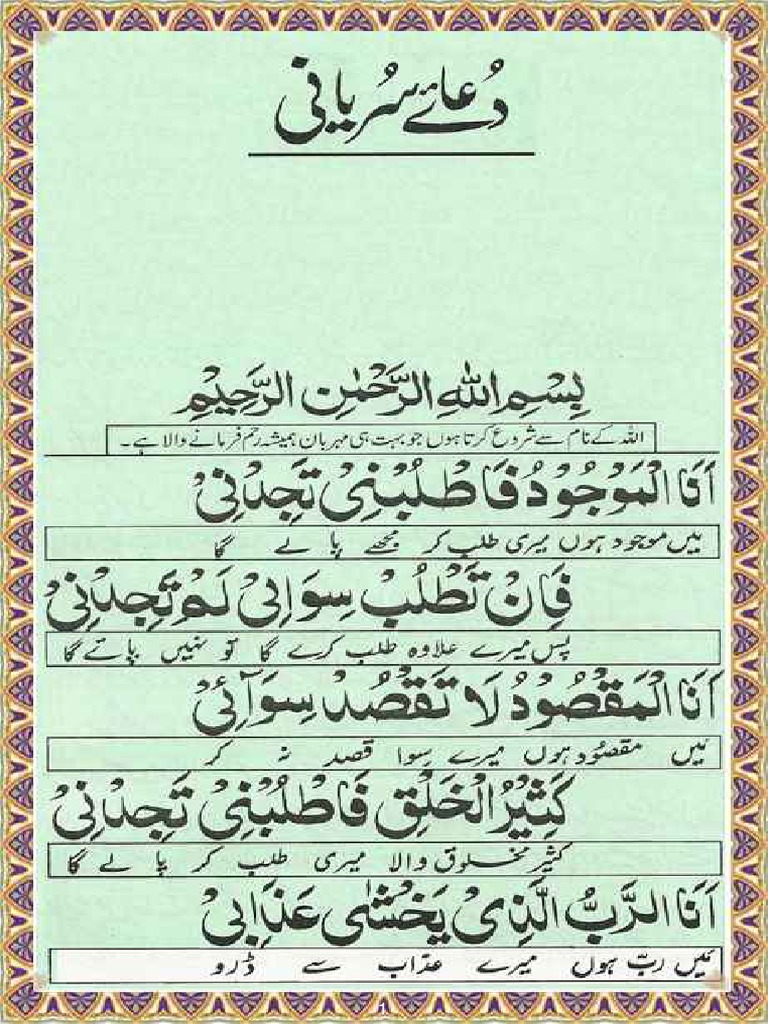 دُعائے سُریانی
بِسْمِ اللهِ الرَّحْمٰنِ الرَّحِيْمِ
اللہ کے نام سے شروع کرتا ہوں جو بہت ہی مہربان ہمیشہ رحم فرمانے والا ہے۔
اَنَا الْمَوْجُوْدُ فَاطْلُبْنِىْ تَجِدْنِىْ
میں موجود ہوں میری طلب کر مجھے پا لے گا
فَاِنْ تَطْلُبْ سِوَاىِٕىْ لَمْ تَجِدْنِىْ
پس میرے علاوہ طلب کرے گا تو نہیں پائے گا
اَنَا الْمَقْصُوْدُ لَا تَقْصُدْ سِوَآئِىْ
میں مقصُود ہوں میرے سِوا قصد نہ کر
كَثِيْرُ الْخَلْقِ فَاطْلُبْنِىْ تَجِدْنِىْ
کثیر مخلوق والا میری طلب کر پا لے گا
اَنَا الرَّبُّ الَّذِىْ يَخْشٰى عَذَابِىْ
میں ربّ ہوں میرے عذاب سے ڈرو
1